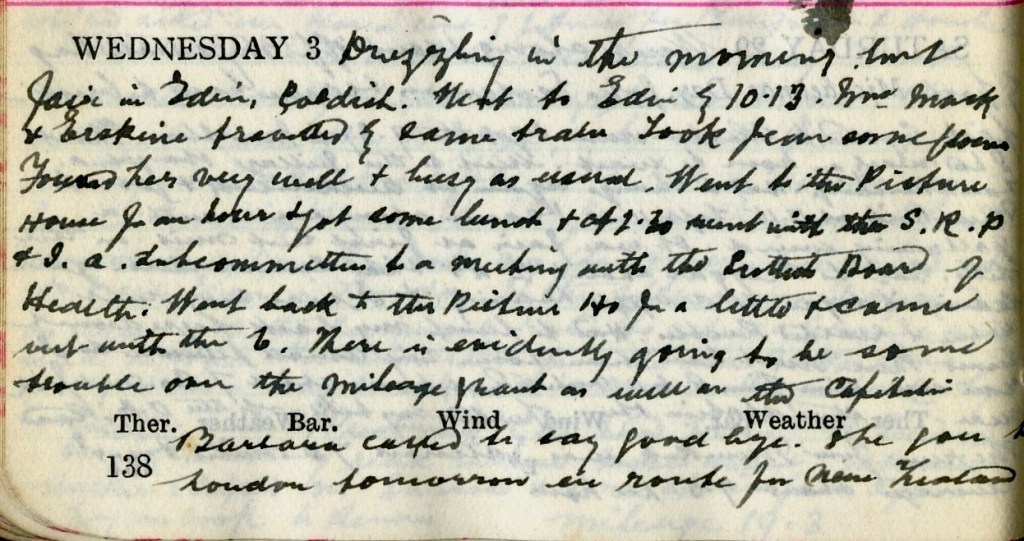 WEDNESDAY 3 Drizzling in the morning but
in Edin, Coldish. Went to Edin by 10.13. Mrs Mack
& Erskine travelled by same train Took Jean some flowers
Found her very well & busy as usual. Went to the Picture
House for an hour & got some lunch & at 2.30 went with the S. R. P
& I. A. Subcommittee to a meeting with the Scottish Board of
Health. Went back to the Picture Ho for a little & came
out with the 6. There is evidently going to be some
trouble over the mileage grant as well as the
Ther. Bar. Wind Weather
Barbara called to say good bye. She goes to
138 London tomorrow en route for New Zealand